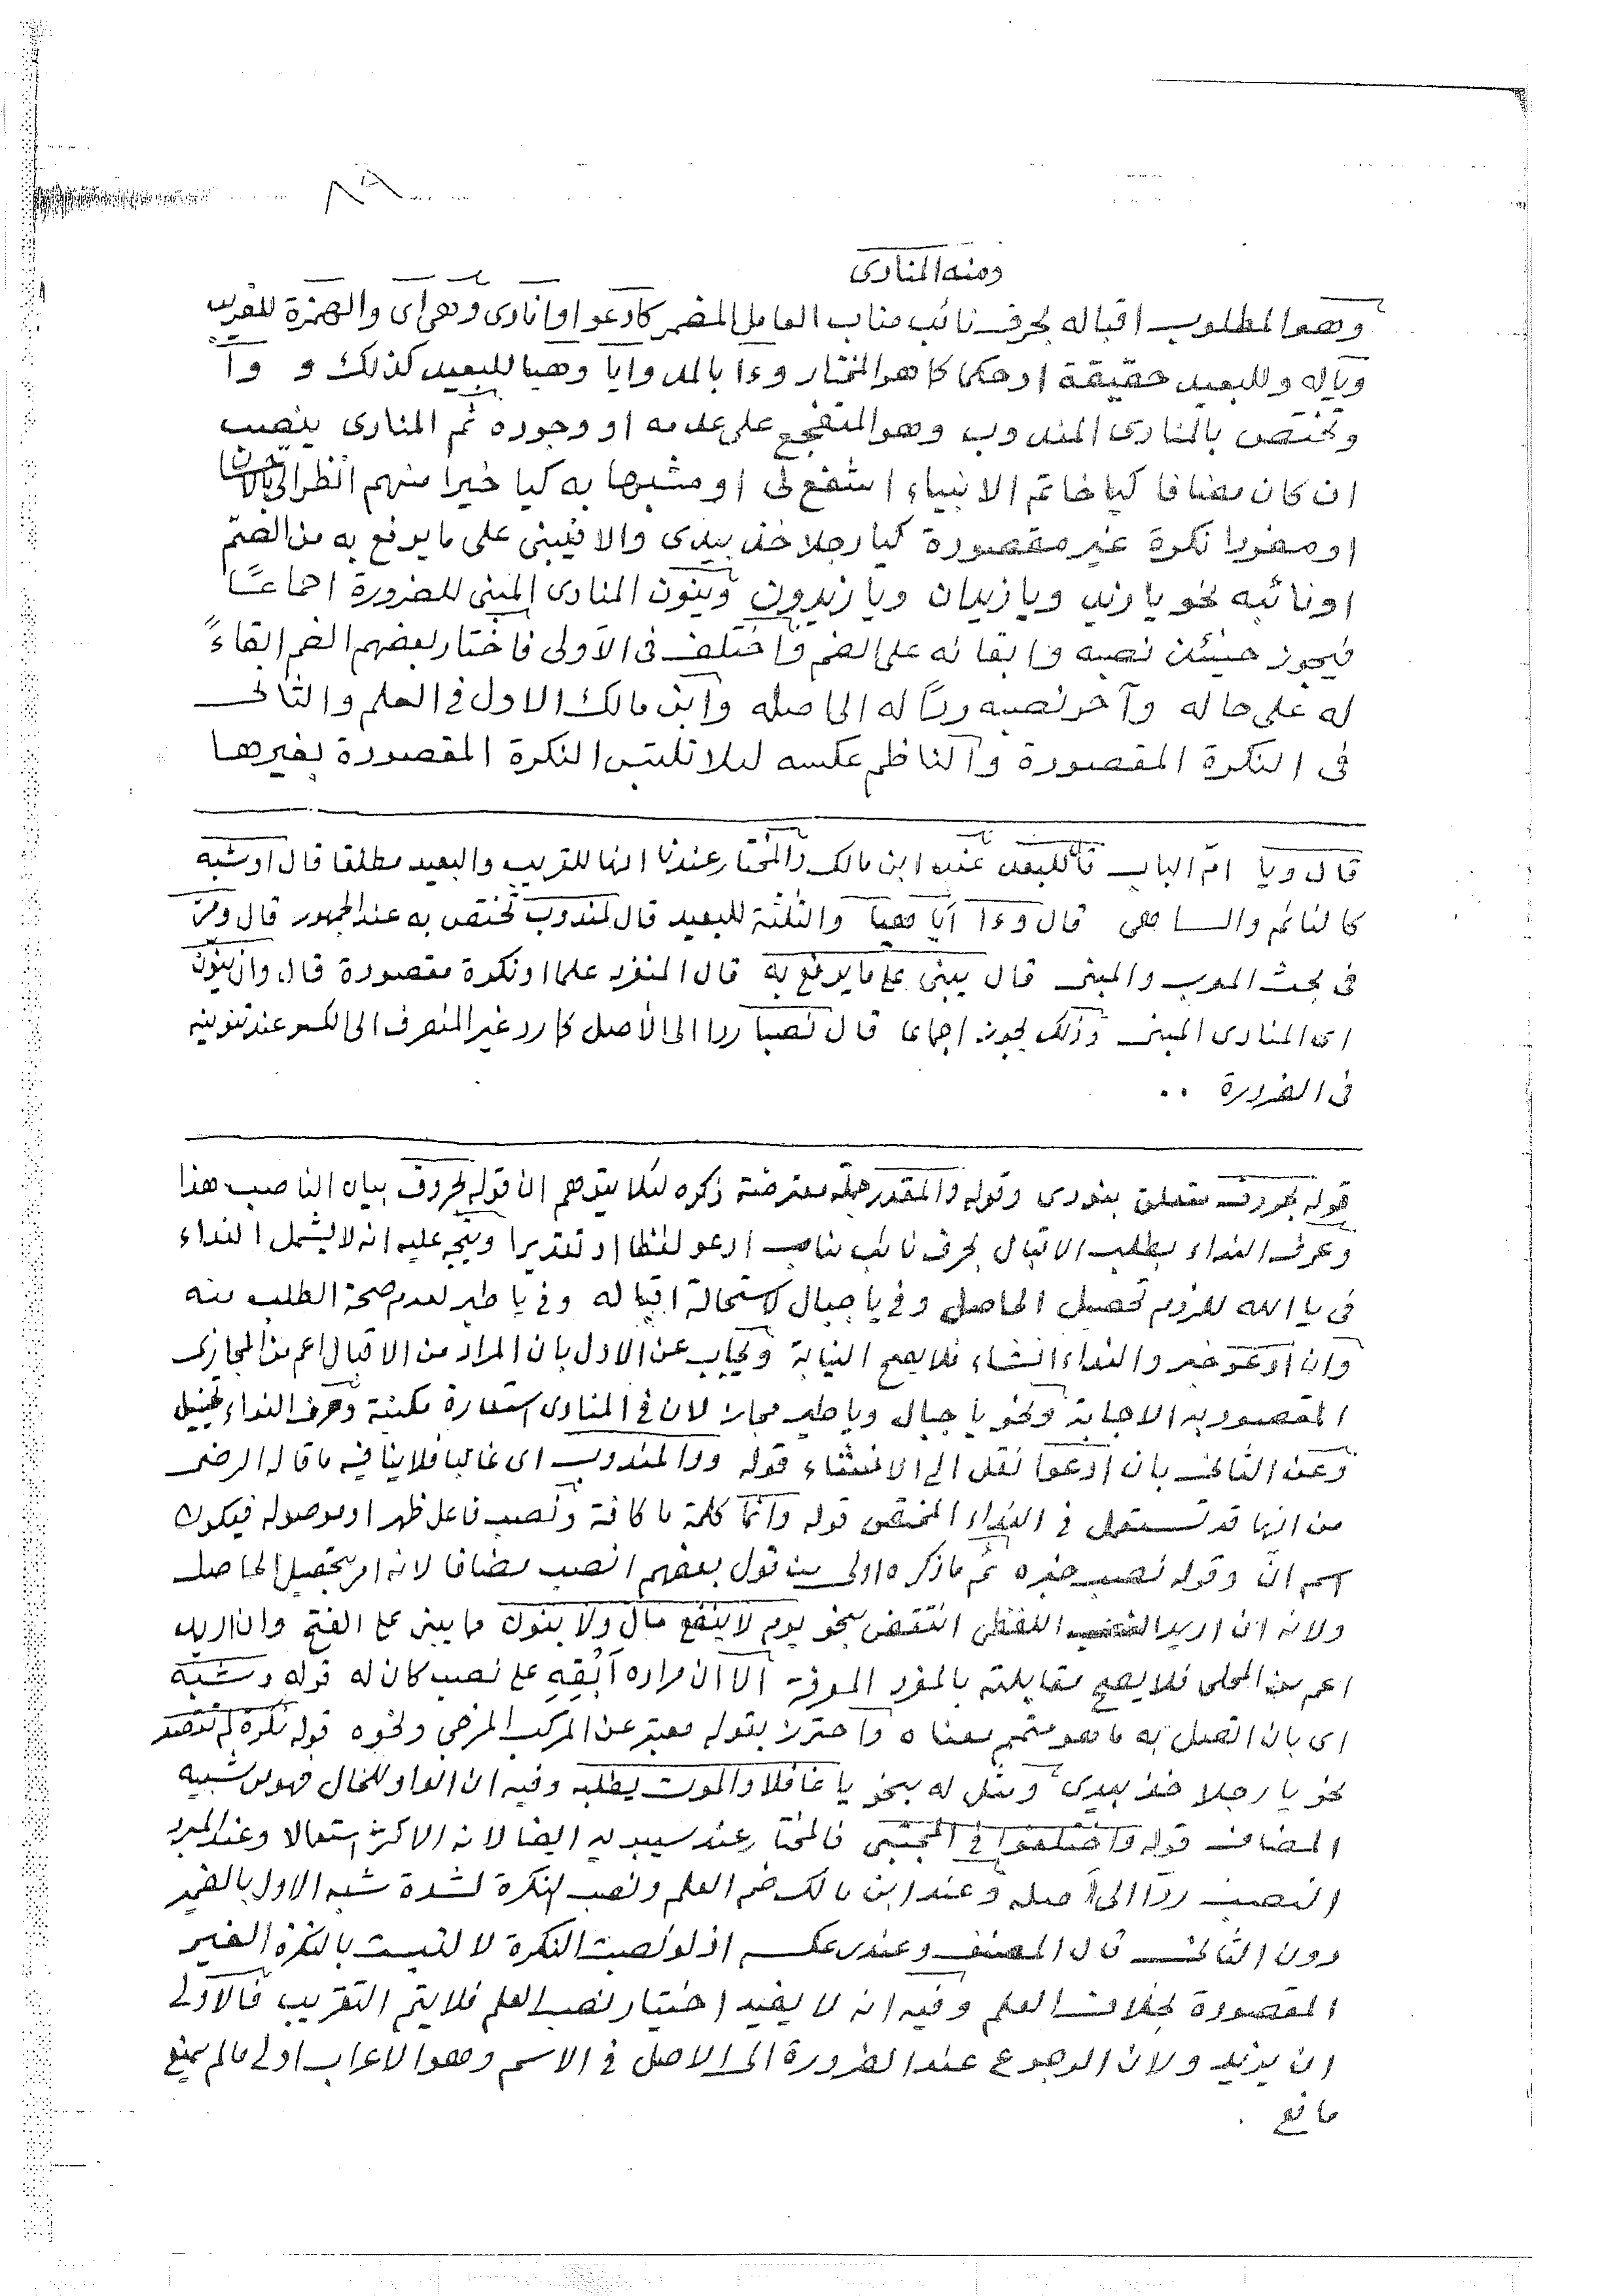 ومنه المنادى
وهو المطلوب اقباله بحرف نائب مناب العامل المضمر كادعو او انادى وهى اى والهمزة للقريب
وياله وللبعيد حقيقة او حكما كما هو المختار وءا بالمد وايا وهيا للبعيد كذلك و وا
وتختص بالمنادى المندوب وهو المتفجع على عدمه او وجوده ثم المنادى ينصب
ان كان مضافا كيا خاتم الانبياء اشفع لى او مشبها به كيا خيرا منهم انظر الى
او مفردا نكرة غير مقصورة كيا رجلا خذ بيدى والا فيبنى على ما يرفع به من الضم
او نائبه نحو يا زيد ويا زيدان ويا زيدون وينون المنادى المبنى للضرورة اجماعًا
فيجوز حينئذ نصبه وابقائه على الضم واختلف فى الاولى فاختار بعضهم الضم ابقاءً
له على حاله وآخر نصبه ردّا له الى اصله وابن مالك الاول فى العلم والثانى
فى النكرة المقصورة والناظم عكسه لئلا تلتبس النكرة المقصورة بغيرها
قال ويا امّ الباب فاللبعد عند ابن مالك والمختار عندنا انها للقريب والبعيد مطلقا قال او شبه
كالنائم والساهى قال وءا أيا هيا والثلثة للبعيد قال لمندوب تختص به عند الجمهور قال ومرّ
فى بحث المعرب والمبنى قال يبنى على ما يرفع به قال المفرد علما او نكرة مقصورة قال وان ينوّن
اى المنادى المبنى وذلك يجوز اجماعا قال نصبا ردا الى الأصل كما رد غير المنصرف الى الكسر عند تنوينه
فى الضرورة ..
قوله بحروف متعلق بنودى وقوله والمقدر جملة معترضة ذكره لئلا يتوهم ان قوله بحروف بيان الناصب هذا
وعرف النداء بطلب الاقبال بحرف نائب مناب ادعو لفظا او تقديرا ويتجه عليه انه لا يشمل النداء
فى يا الله للزوم تحصيل الحاصل وفى يا جبال لاستحالة اقباله وفى يا طير لعدم صحة الطلب منه
وان ادعو خبر والنداء انشاء فلا يصح النيابة ويجاب عن الاول بان المراد من الاقبال اعم من المجازى
المقصود به الاجابة ونحو يا جبال ويا طير مجاز لان فى المنادى استعارة مكنية وحرف النداء تخييل
وعن الثانى بان ادعوا نقل الى الانشاء قوله ووا لمندوب اى غالبا فلا ينافيه ما قاله الرضى
من انها قد تستعمل فى النداء المختص قوله وانما كلمة ما كافة ونصب فاعل ظهر او موصوله فيكون
اسم انّ وقوله نصب خبره ثم ما ذكره اولى من قول بعضهم انصب مضافا لانه امر بتحصيل الحاصل
ولانه ان اريد النصب اللفظى انتقض بنحو يوم لا ينفع مال ولا بنون مما يبنى على الفتح وان اريد
اعم من المحلى فلا يصح مقابلته بالمفرد المعرفة الا ان مراده أبقِهِ على نصب كان له قوله وشبه
اى بان اتصل به ما هو متمم معناه واحترز بقوله معتبر عن المركب المزجى ونحوه قوله نكرة لم تقصد
نحو يا رجلا خذ بيدى ومثل له بنحو يا غافلا والموت يطلبه وفيه ان الواو للحال فهو من شبيه
المضاف قوله واختلفوا فى المجتبى فالمختار عند سيبويه ايضا لانه الاكثر استعمالا وعند المبرد
النصب ردّا الى أصله وعند ابن مالك ضم العلم ونصب النكرة لشدة شبه الاول بالضمير
دون الثانى قال المصنف وعندى عكسه اذ لو نصبت النكرة لالتبست بالنكرة الغير
المقصورة بخلاف العلم وفيه انه لا يفيد اختيار نصب العلم فلا يتم التقريب فالاولى
ان يزيد ولان الرجوع عند الضرورة الى الاصل فى الاسم وهو الاعراب اولى ما لم يمنع
مانع .